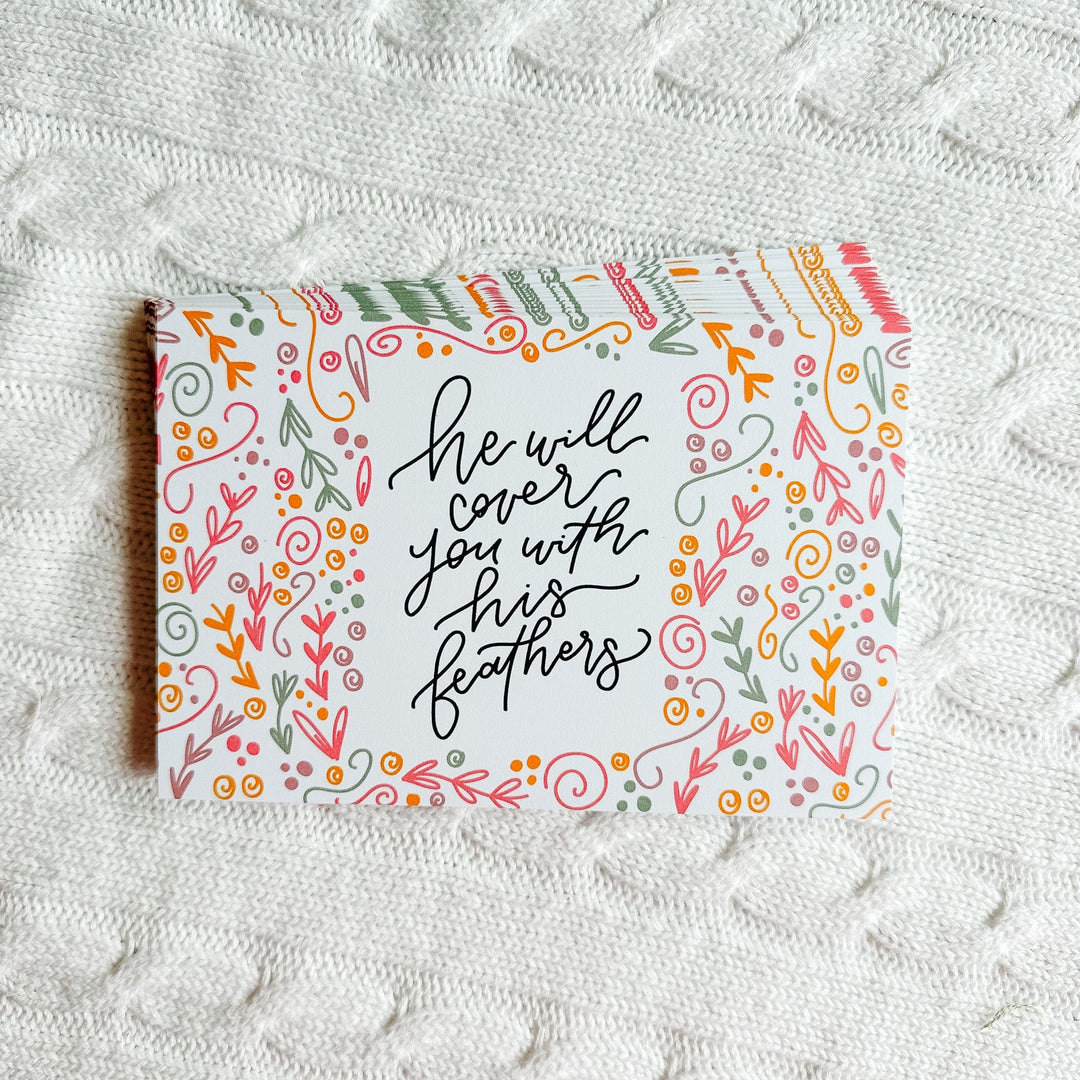 he will
cover
you with
his
feathers